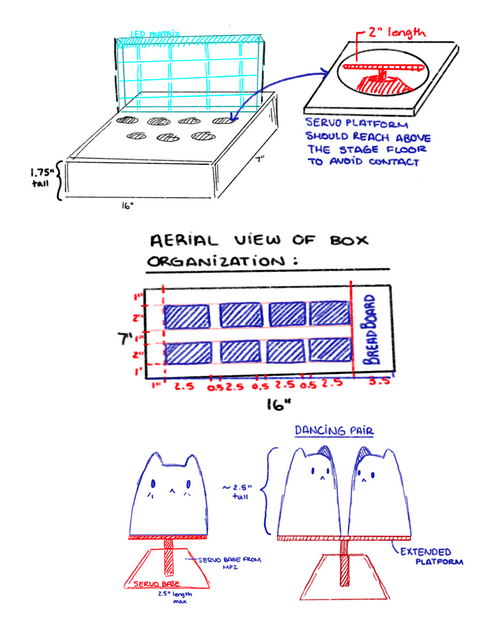 LED MATRIX
2" length
SERVO PLATFORM
SHOULD REACH ABOVE
THE STAGE FLOOR
TO AVOID CONTACT
1.75"
tall
7"
16"
AERIAL VIEW OF BOX
ORGANIZATION:
1"
2"
1"
2"
1"
7'
BREADBOARD
1" 2.5 0.5 2.5 0.5 2.5 0.5 2.5 3.5
16"
DANCING PAIR
~ 2.5"
tall
SERVO BASE FROM
MP2
SERVO BASE
2.5" length
max
EXTENDED
PLATFORM